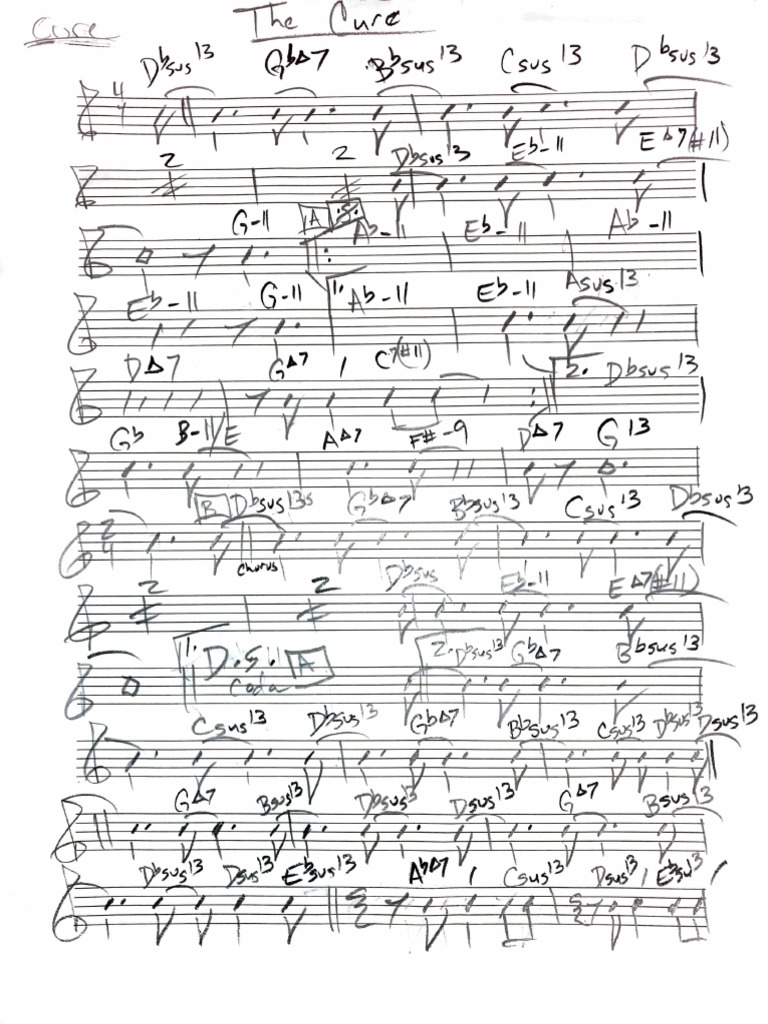 The Cure
Cure
D♭sus13 G♭Δ7 B♭sus13 Csus13 D♭sus13
4/4
2 2 D♭sus13 E♭-11 EΔ7(#11)
G-11 A A♭-11 E♭-11 A♭-11
E♭-11 G-11 1. A♭-11 E♭-11 Asus13
DΔ7 GΔ7 C7(#11) 2. D♭sus13
G♭ B-11/E AΔ7 F#-9 DΔ7 G13
B D♭sus13 G♭Δ7 B♭sus13 Csus13 D♭sus13
2/4
Chorus
2 2 D♭sus E♭-11 EΔ7(#11)
1. D.S. A 2. D♭sus13 G♭Δ7 B♭sus13
Coda
Csus13 D♭sus13 G♭Δ7 B♭sus13 Csus13 D♭sus13 Dsus13
GΔ7 Bsus13 D♭sus13 Dsus13 GΔ7 Bsus13
D♭sus13 Dsus13 E♭sus13 A♭Δ7 Csus13 Dsus13 E♭sus13